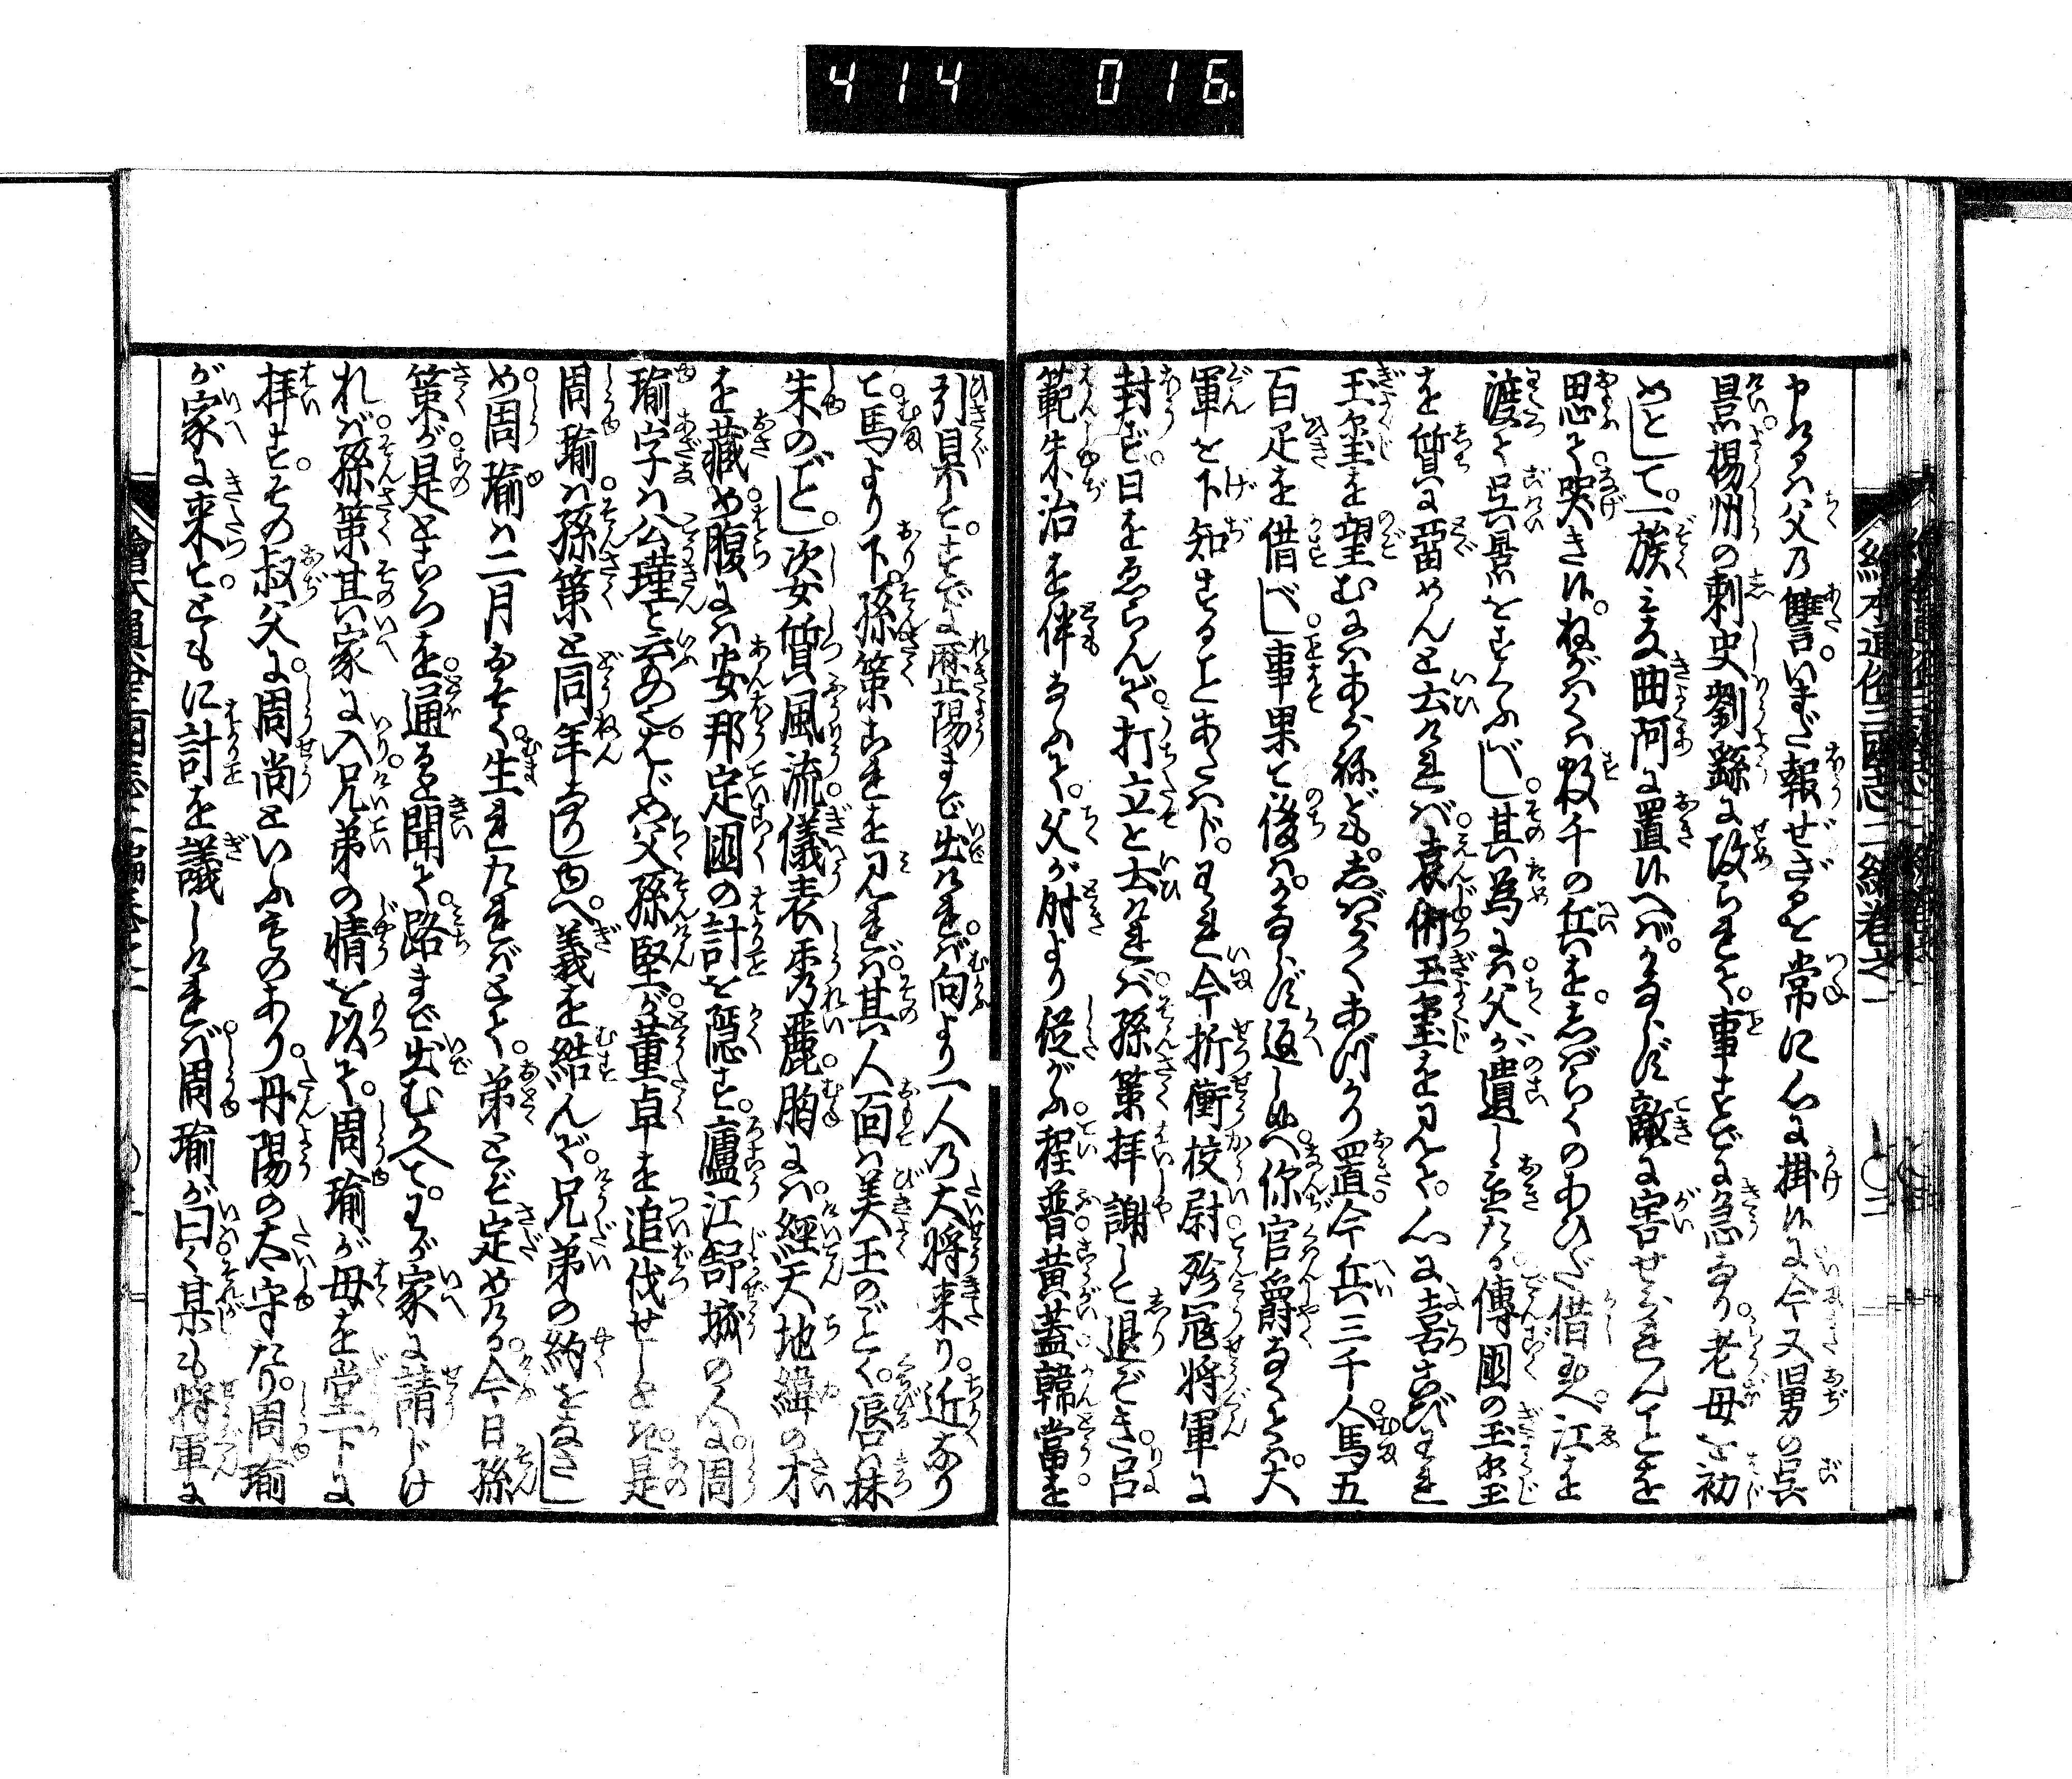 414 016.
繪本通俗三國志二編卷之一
申けるハ父乃讐いまだ報ぜざるを常に心に掛候に今又舅の呉
景揚州の刺史劉繇に攻られて。事すでに急なり。老母を初
めとして。一族みな曲阿に置候へバ。かならず敵に害せられんことを
思て哭き候。ねがハくハ數千の兵を。志ばらくのあひだ借玉へ。江を
渡て呉景をすくふべし。其為にハ父が遺し置たる。傳國の玉璽
を質に留めんと云けれバ。袁術玉璽を見て。心に喜びわれ
玉璽を望むにハあらねども。志バらくあづかり置。今兵三千人。馬五
百疋を借べし。事果て後ハ。かならず返し玉へ。你官爵なくてハ。大
軍を下知することあたハじ。われ今折衝校尉殄寇將軍に
封ず。日をゑらんで。打立と云けれバ。孫策拝謝して退ぞき。呂
範朱治を伴なふて。父が時より從がふ。程普。黄蓋。韓當を
引具して。すでに歴陽まで出けれバ。向より一人乃大将来り。近なり
て。馬より下。孫策これを見れバ。其人面ハ美玉のごとく。唇ハ抹
朱のごとし。次女質風流。儀表秀麗。胸にハ。經天地緯の才
を藏め。腹にハ安邦定國の計を隱す。廬江舒城の人に。周
瑜字ハ公瑾と云ものなり。はじめ父孫堅が。董卓を追伐せしとき。是
周瑜ハ。孫策と同年なりしゆへ。義を結んで。兄弟の約をなさし
め。周瑜ハ二月おそく。生れたれバとて。弟とぞ定めける。今日孫
策が。是ところを。通ると聞て。路まで出むかへて。わが家に請じけ
れバ。孫策其家に入。兄弟の情を以て。周瑜が母を堂下に
拝す。その叔父に。周尚といふものあり。丹陽の太守たり。周瑜
が家に来て。ともに計を議しけれバ。周瑜が曰く。某も將軍に